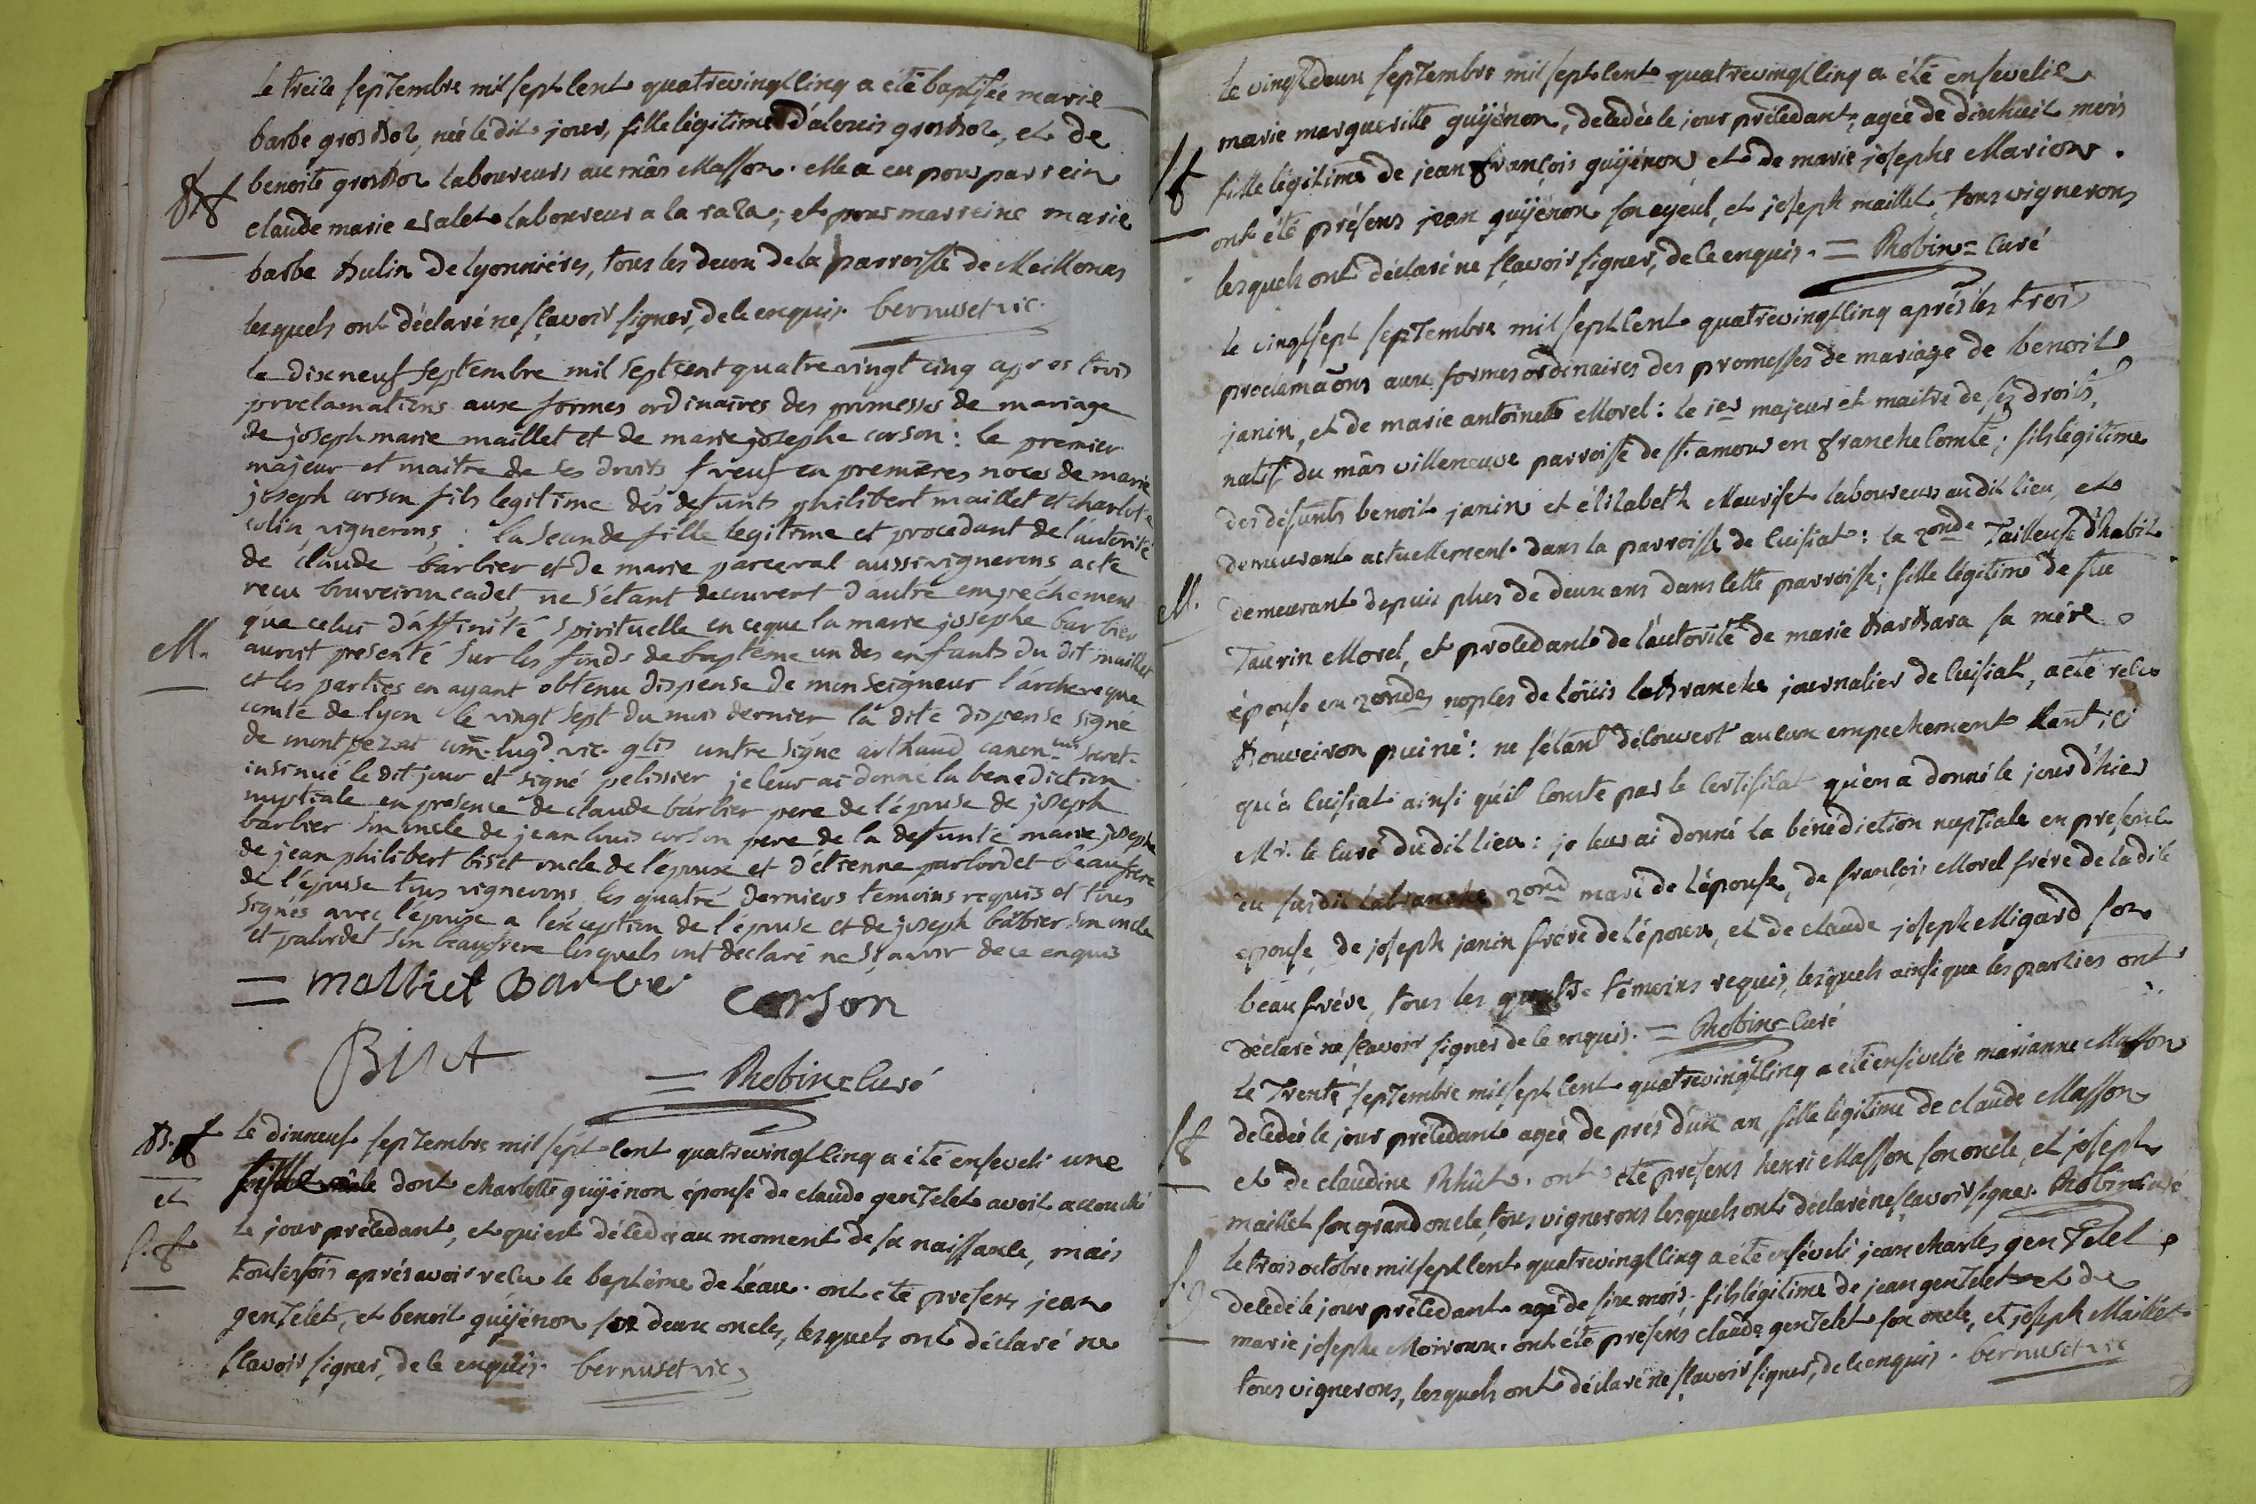 Le treize septembre mil sept cent quatrevingt cinq a été baptisée marie
barbe grosbor, née le dit jour, fille légitime d'alouis grosbor, et de
benoite grosbor laboureurs au mâs Masson. elle a eu pour parrein
claude marie laboureur a la raza; et pour marreine marie
barbe bulin de lyonnières, tous les deux de la parroisse de Meillonas
lesquels ont déclaré ne sçavoir signer, de ce enquis. bernuset vic.
B f
le dixneuf septembre mil sept cent quatre vingt cinq apres trois
proclamations aux formes ordinaires des promesses de mariage
de joseph marie maillet et de marie josephe corson: le premier
majeur et maitre de ses droits et veuf en premieres noces de marie
joseph corson fils legitime des defunts philibert maillet et charlote
colin, vignerons; la seconde fille legitime et procedant de l'autorité
de claude barbier et de marie parceval aussi vignerons acte
recu bouveiron cadet ne s'étant decouvert d'autre empêchement
que celui d'affinité spirituelle en ce que la marie josephe barbier
auroit presenté sur les fonds de baptême un des enfants du dit maillet
M.
et les parties en ayant obtenu dispense de monseigneur l'archeveque
comte de lyon le vingt sept du mois dernier la dite dispense signé
de montpezat com. lugd. vic. glis contre signé arthaud canon.cus secret.
insinué le dit jour et signé pelissier je leur ai donné la benediction
nuptiale en presence de claude barbier pere de l'épouse de joseph
barbier son oncle de jean louis corson pere de la defunte marie josephe
de jean philibert biset oncle de l'epoux et d'étienne beaufrere
de l'épouse tous vignerons les quatre derniers temoins requis et tous
signés avec l'epoux a l'exception de l'épouse et de joseph barbier son oncle
et son beaufrere lesquels ont declaré ne sçavoir de ce enquis
= Malliet Barbié Corson
Biset
= Robin = Curé
B. f
et
S. f
Le dixneuf septembre mil sept cent quatrevingt cinq a été enseveli une
fille dont charlotte guÿénon épouse de claude gentelet avoit accouché
le jour précedant, et qui est décedée au moment de sa naissance, mais
toutesfois après avoir reçu le baptême de l'eau. ont été presens jean
gentelet, et benoit guÿénon ses deux oncles, lesquels ont déclaré ne
sçavoir signer, de ce enquis. bernuset vic.
Le vingt deux septembre mil sept cent quatrevingt cinq a été ensevelie
marie marguerite guÿénon, decedée le jour précedant, agée de dixhuit mois
Sf
fille légitime de jean françois guÿénon, et de marie josephe Marion.
ont été présens jean guÿénon son ayeul, et joseph maillet, tous vignerons
lesquels ont déclaré ne sçavoir signer, de ce enquis. = Robin = Curé
le vingt sept septembre mil sept cent quatrevingt cinq après les trois
proclamaõns aux formes ordinaires des promesses de mariage de benoit
janin, et de marie antoinette Morel: le 1er majeur et maitre de ses droits,
natif du mâs villeneuve parroisse de st. amour en franche Comté; fils légitime
des défunts benoit janin et élizabeth Mauriset laboureurs au dit lieu, et
demeurant actuellement dans la parroisse de Cuisiat: la 2onde Tailleuse d'habit
M.
demeurant depuis plus de deux ans dans cette parroisse; fille légitime de feu
Taurin Morel, et procedante de l'autorité de marie barbara sa mére
épouse en 2ondes nopces de Loüis labranche journalier de Cuisiat, acte reçu
bouveiron puiné: ne s'étant découvert aucun empechement tant ici
qu'à Cuisiat ainsi qu'il conste par le certificat qu'en a donné le jour d'hier
Mr. le Curé du dit lieu: je leur ai donné la bénédiction nuptiale en présence
du susdit labranche 2ond mari de l'épouse, de françois Morel frére de la dite
épouse, de joseph janin frére de l'époux, et de claude joseph Migard son
beaufrére, tous les quatre témoins requis, lesquels ainsi que les parties ont
déclaré ne sçavoir signer de ce enquis. = Robin = Curé
Le trente septembre mil sept cent quatrevingt cinq a été ensevelie marianne Masson
Sf
decedée le jour précedant agée de prés d'un an, fille légitime de claude Masson
et de claudine Rhût. ont été présens henri Masson son oncle, et joseph
maillet son grand oncle, tous vignerons lesquels ont déclaré ne sçavoir signer. Robin Curé
Le trois octobre mil sept cent quatrevingt cinq a été enséveli jean charles gentelet
S. g
decedé le jour précedant agé de six mois, fils légitime de jean gentelet et de
marie josephe Moiroux. ont été présens claude gentelet son oncle, et joseph Maillet
tous vignerons, lesquels ont déclaré ne sçavoir signer, de ce enquis. bernuset vic